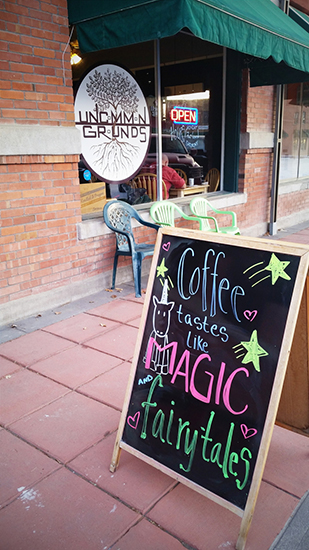 UNCOMMON
GROUNDS
OPEN
Coffee
tastes
like
MAGIC
AND
fairytales